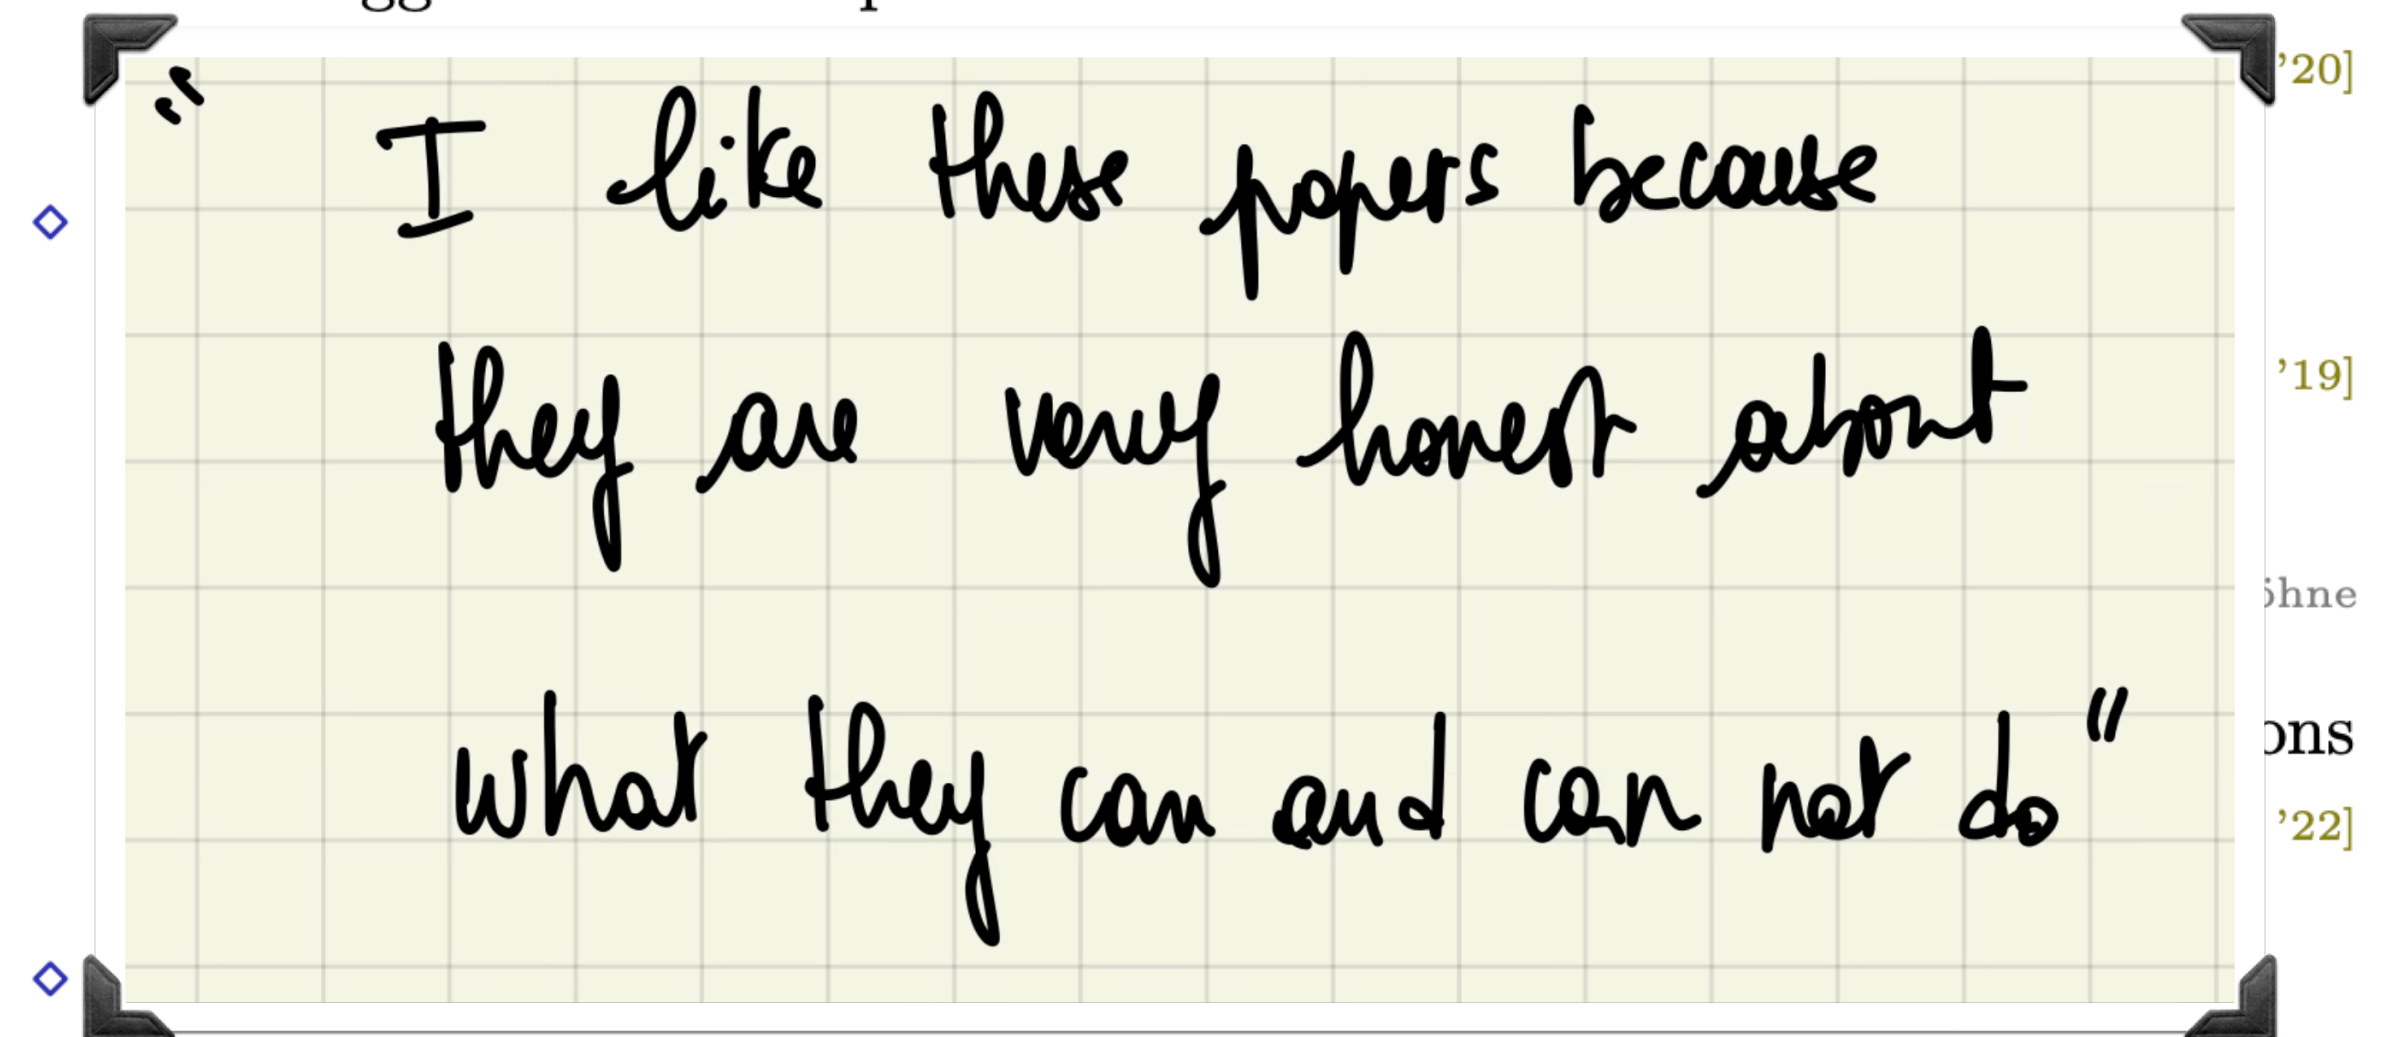 ’20]
" I like these papers because
they are very honest about
’19]
what they can and can not do"
ons
’22]